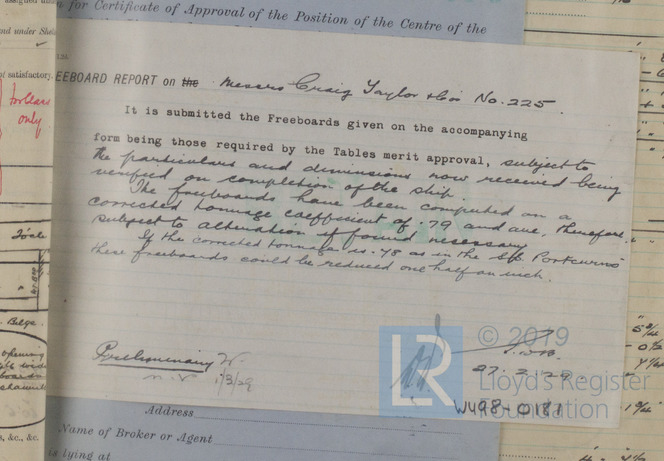 n for Certificate of Approval of the Position of the Centre of the
of satisfactory.
for Clears
only
REEBOARD REPORT on the Messrs Craig Taylor & Co No. 225.
It is submitted the Freeboards given on the accompanying
form being those required by the Tables merit approval, subject to
the particulars and dimensions now received being
verified on completion of the ship.
The freeboards have been computed on a
corrected tonnage coefficient of .79 and are, therefore,
subject to alteration if found necessary
If the corrected tonnage is .78 as in the S/S. Portcurno
these freeboards could be reduced one half an inch.
Preliminary
1/3/29
27.2.29
© 2019
LR
Lloyd's Register
Foundation
W498-0181
Address
Name of Broker or Agent
is lying at
&c., &c.